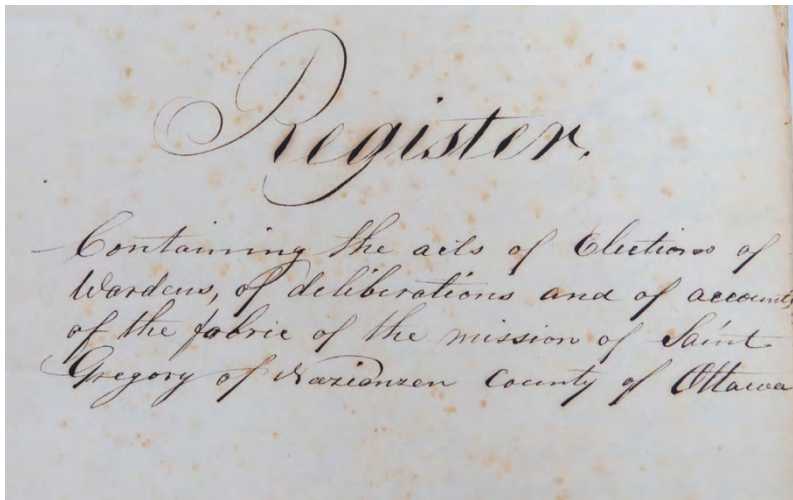 Register.
Containing the acts of Elections of
Wardens, of deliberations and of accounts
of the fabric of the mission of Saint
Gregory of Nazianzen County of Ottawa